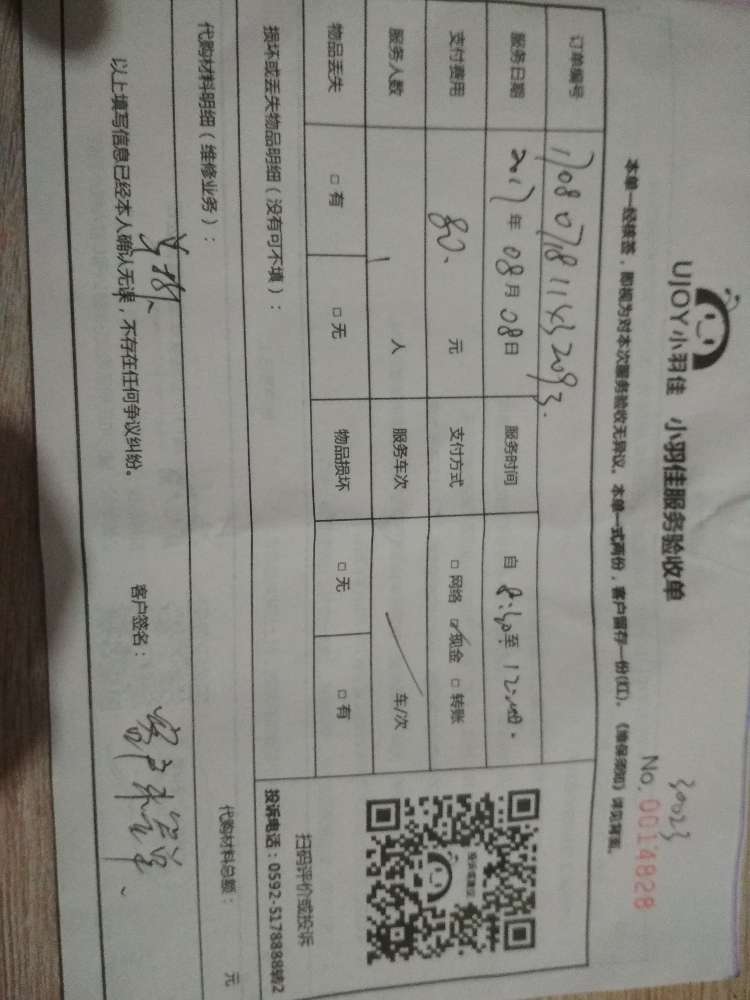 UJOY小羽佳 小羽佳服务验收单
30023
No. 0014828
本单一经接签，即视为对本次服务验收无异议。本单一式两份，客户留存一份(红)。《维保须知》详见背面。
订单编号
服务日期 2017年08月08日 服务时间 自 8:30 至 12:00.
支付费用 80. 元 支付方式 □ 网络 ☑ 现金 □ 转账
服务人数 1 人 服务车次 / 车/次
物品丢失 □ 有 □ 无 物品损坏 □ 无 □ 有
损坏或丢失物品明细（没有可不填）：
扫码评价或投诉
投诉电话：0592-5178888转2
代购材料明细（维修业务）： 代购材料总额： 元
以上填写信息已经本人确认无误，不存在任何争议纠纷。 客户签名：